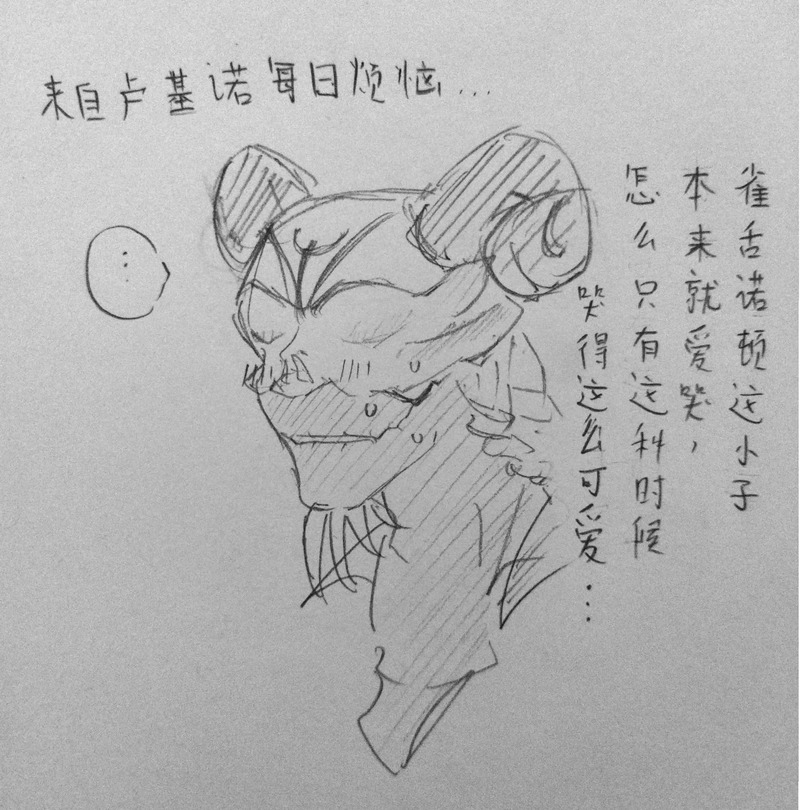 来自卢基诺每日烦恼...
...
雀舌诺顿这小子
本来就爱哭，
怎么只有这种时候
哭得这么可爱...